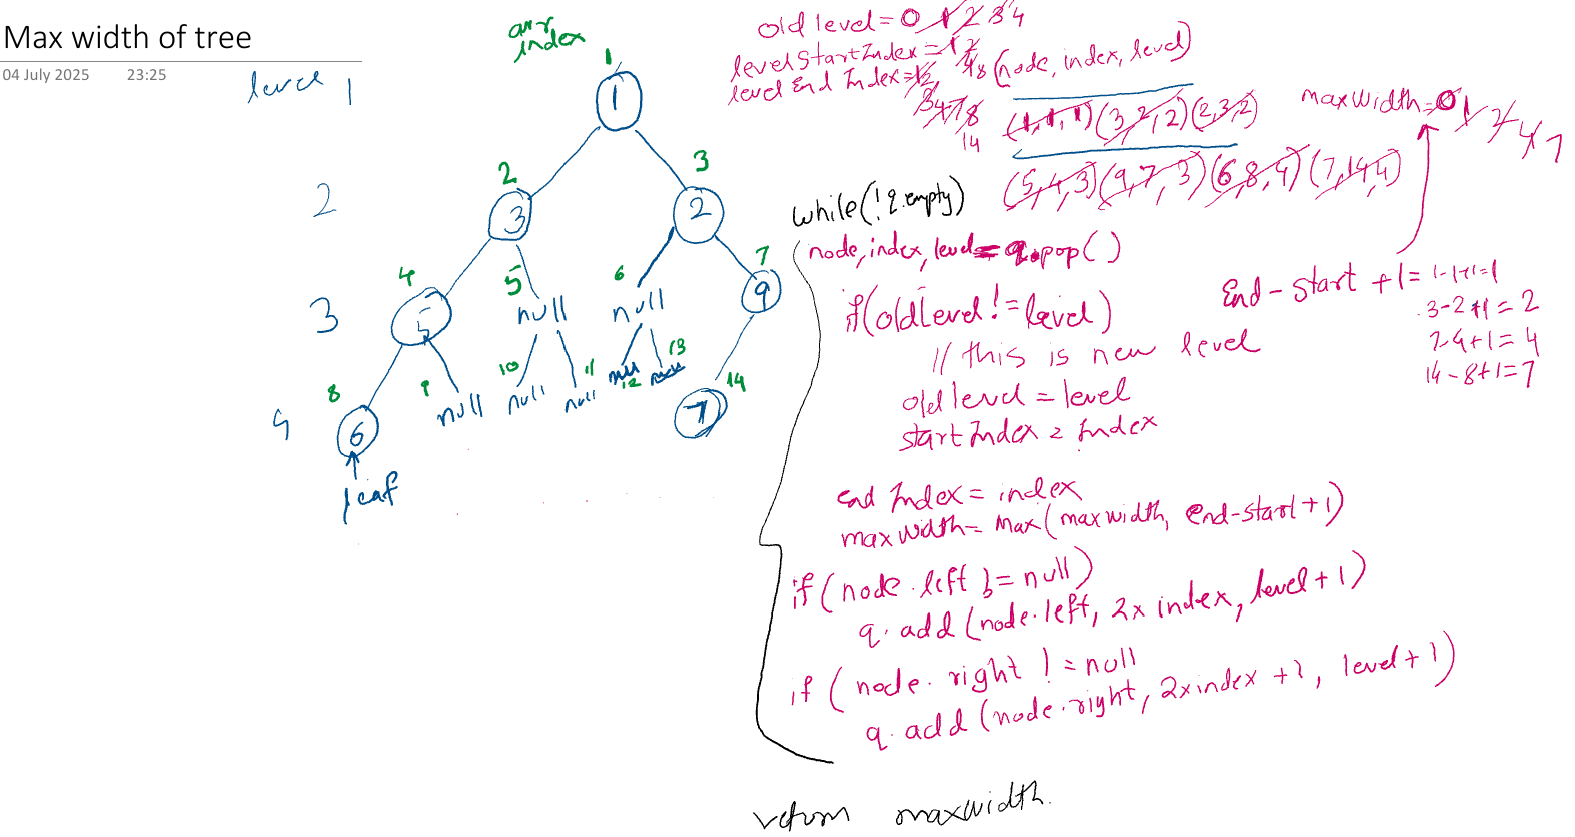 Max width of tree
04 July 2025 23:25
level 1
2
3
4
arr
index
1
1
2
3
3
2
4
5
6
7
5
null
null
9
8
9
10
11
12
13
14
6
null
null
null
null
null
7
leaf
old level = 0 1 2 3 4
levelStartIndex = 1 2 4 8
level End Index = 1 2
3 4 7 8
14
(node, index, level)
(1, 1, 1) (3, 2, 2) (2, 3, 2)
(5, 4, 3) (9, 7, 3) (6, 8, 4) (7, 14, 4)
maxwidth = 0 1 2 4 7
End - start + 1 = 1 - 1 + 1 = 1
3 - 2 + 1 = 2
7 - 4 + 1 = 4
14 - 8 + 1 = 7
while(!q.empty)
node, index, level = q.pop()
if(oldLevel != level)
// this is new level
old level = level
startIndex = Index
end Index = index
maxwidth = Max(maxwidth, end-start+1)
if (node.left != null)
q.add (node.left, 2x index, level + 1)
if (node.right != null
q.add (node.right, 2xindex +1, level + 1)
return maxwidth.